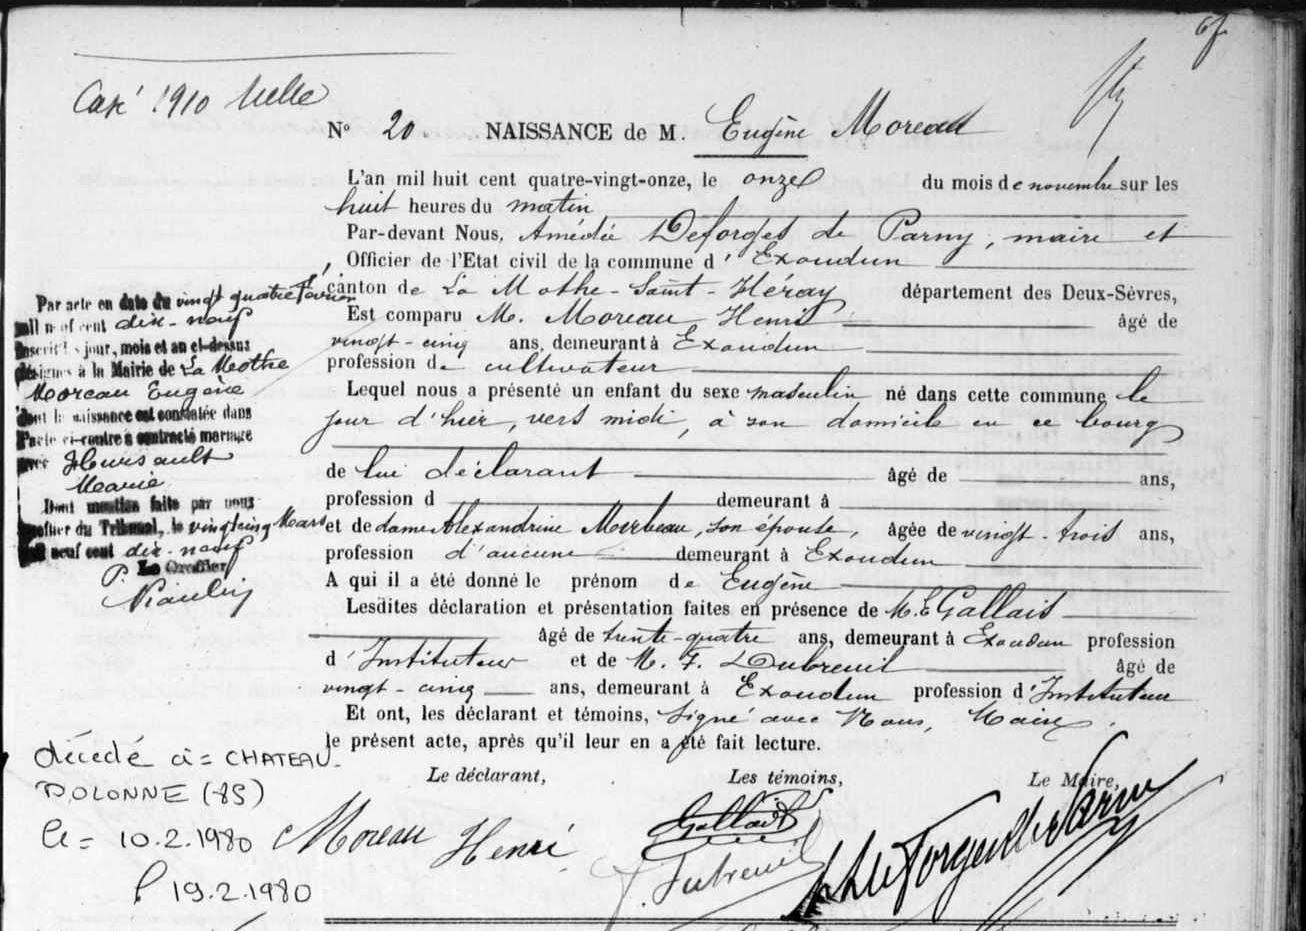 1910 Melle
N° 20 NAISSANCE de M. Eugène Moreau
L'an mil huit cent quatre-vingt-onze, le onze du mois de novembre sur les
huit heures du matin
Par-devant Nous, Amédée Deforges de Parny, maire et
Officier de l'Etat civil de la commune d'Exoudun
canton de La Mothe-Saint-Héray département des Deux-Sèvres,
Est comparu M. Moreau Henri âgé de
vingt-cinq ans, demeurant à Exoudun
profession de cultivateur
Lequel nous a présenté un enfant du sexe masculin né dans cette commune le
jour d'hier, vers midi, à son domicile en ce bourg
de lui déclarant âgé de ans,
profession d demeurant à
et de dame Alexandrine Mirbeau, son épouse, âgée de vingt-trois ans,
profession d'aucune demeurant à Exoudun
A qui il a été donné le prénom de Eugène
Lesdites déclaration et présentation faites en présence de M. E Gallais
âgé de trente-quatre ans, demeurant à Exoudun profession
d'Instituteur et de M. F. Dubreuil âgé de
vingt-cinq ans, demeurant à Exoudun profession d'Instituteur
Et ont, les déclarant et témoins, signé avec Nous, Maire,
le présent acte, après qu'il leur en a été fait lecture.
Le déclarant, Les témoins, Le Maire,
Moreau Henri
Gallais
Dubreuil
Par acte en date du vingt quatre février
mil neuf cent dix-neuf
inscrit les jour, mois et an ci-dessus
désignés à la Mairie de La Mothe
Moreau Eugène
dont la naissance est constatée dans
l'acte ci-contre a contracté mariage
avec
Marie
Dont mention faite par nous
Greffier du Tribunal, le vingt cinq Mars
mil neuf cent dix-neuf
P. Le Greffier
décédé à = CHATEAU-
D'OLONNE (85)
le = 10.2.1980
19.2.1980